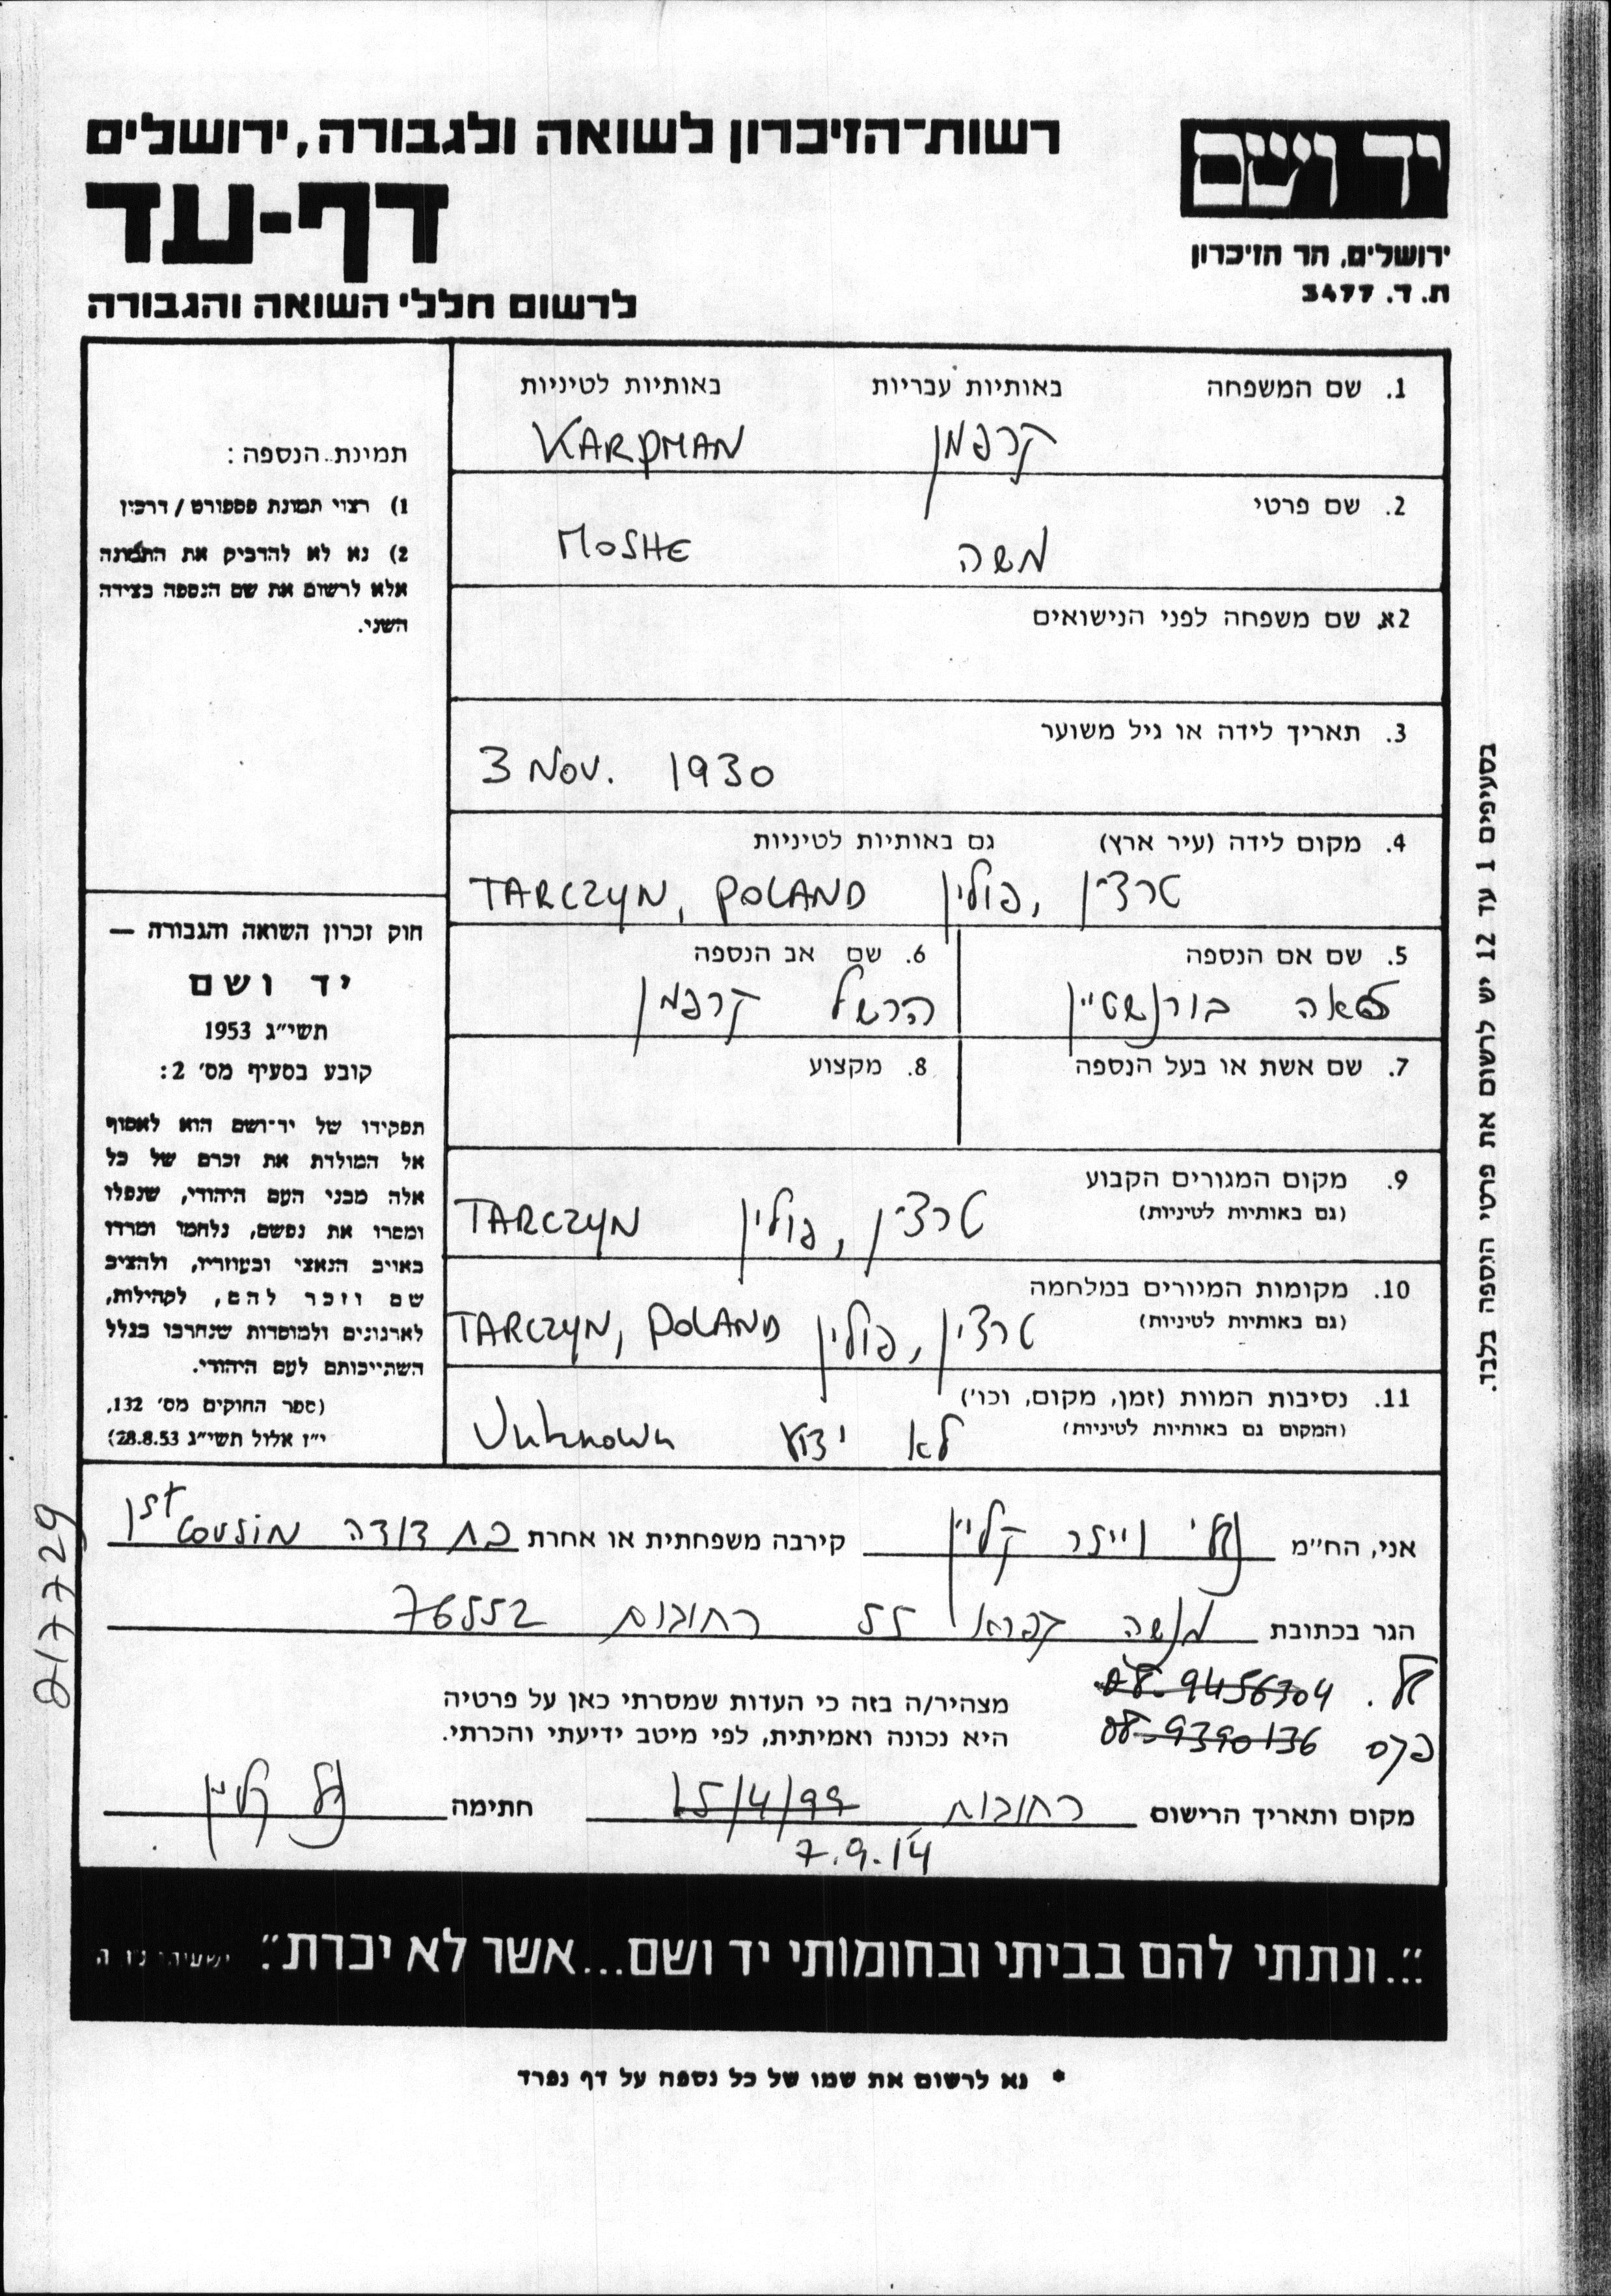 רשות־הזיכרון לשואה ולגבורה, ירושלים
דף-עד
לרשום חללי השואה והגבורה
יד ושם
ירושלים, הר הזיכרון
ת. ד. 3477
1. שם המשפחה באותיות עבריות באותיות לטיניות
קרפמן KARPMAN
2. שם פרטי
משה MOSHE
2א. שם משפחה לפני הנישואים
3. תאריך לידה או גיל משוער
3 NOV. 1930
4. מקום לידה (עיר ארץ) גם באותיות לטיניות
טרצ'ין, פולין TARCZYN, POLAND
5. שם אם הנספה
בורנשטיין
6. שם אב הנספה
הרשל קרפמן
7. שם אשת או בעל הנספה
8. מקצוע
9. מקום המגורים הקבוע
(גם באותיות לטיניות)
טרצ'ין, פולין TARCZYN
10. מקומות המיורים במלחמה
(גם באותיות לטיניות)
טרצין, פולין TARCZYN, POLAND
11. נסיבות המוות (זמן, מקום, וכו')
(המקום גם באותיות לטיניות)
לא ידוע Unknown
תמינת הנספה:
1) רצוי תמונת פספורט / דרכין
2) נא לא להדביק את התמונה
אלא לרשום את שם הנספה בצידה
השני.
חוק זכרון השואה והגבורה —
יד ושם
תשי"ג 1953
קובע בסעיף מס' 2:
תפקידו של יד־ושם הוא לאסוף
אל המולדת את זכרם של כל
אלה מבני העם היהודי, שנפלו
ומסרו את נפשם, נלחמו ומרדו
באויב הנאצי ובעוזריו, ולהציב
שם וזכר להם, לקהילות,
לארגונים ולמוסדות שנחרבו בגלל
השתייכותם לעם היהודי.
(ספר החוקים מס' 132,
י"ז אלול תשי"ג 28.8.53)
בסעיפים 1 עד 12 יש לרשום את פרטי הנספה בלבד.
217729
אני, הח"מ נלי וייזר קליין קירבה משפחתית או אחרת בת דודה 1st COUSIN
הגר בכתובת מנשה קפרא 55 רחובות 76552
טל. 08-9456304
פקס 08-9390136
מצהיר/ה בזה כי העדות שמסרתי כאן על פרטיה
היא נכונה ואמיתית, לפי מיטב ידיעתי והכרתי.
מקום ותאריך הרישום רחובות 15/4/99 חתימה
7.9.14
"...ונתתי להם בביתי ובחומותי יד ושם...אשר לא יכרת". ישעיהו נו ה
* נא לרשום את שמו של כל נספה על דף נפרד